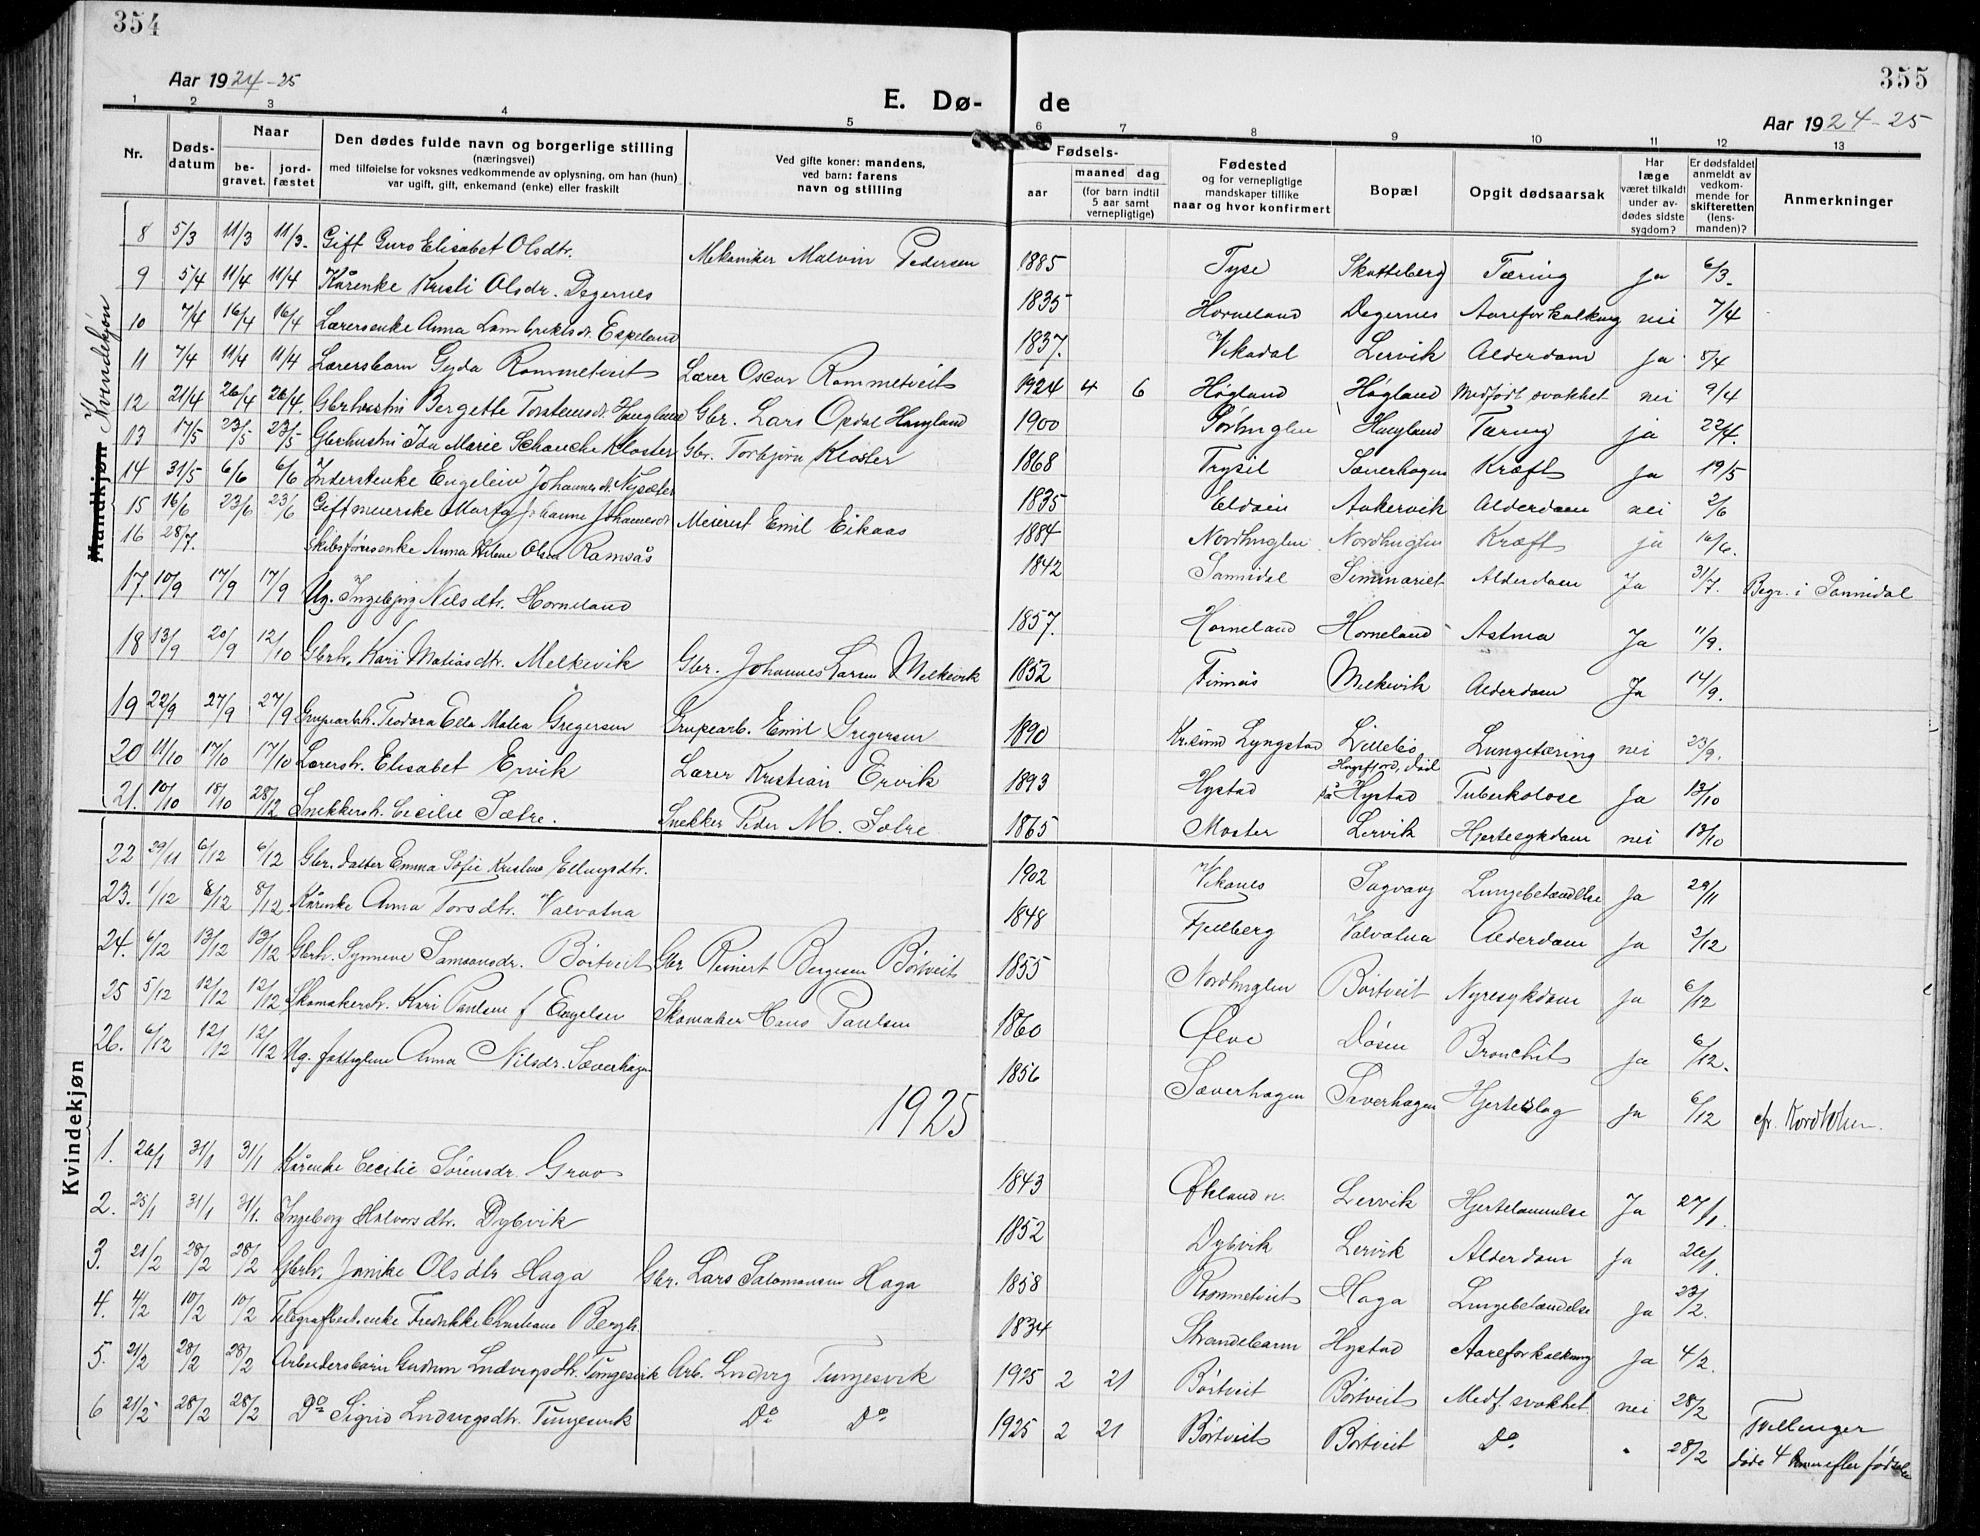 354
355
Aar 1924-25
E. Dø- de
Aar 1924-25
1 2 3 4 5 6 7 8 9 10 11 12 13
Nr.
Døds-datum
Naar
be-gravet.
jord-fæstet
Den dødes fulde navn og borgerlige stilling
(næringsvei)
med tilføielse for voksnes vedkommende av oplysning, om han (hun)
var ugift, gift, enkemand (enke) eller fraskilt
Ved gifte koner: mandens,
ved barn: farens
navn og stilling
Fødsels-
aar
maaned dag
(for barn indtil
5 aar samt
vernepligtige)
Fødested
og for vernepligtige
mandskaper tillike
naar og hvor konfirmert
Bopæl
Opgit dødsaarsak
Har
læge
været tilkaldt
under av-
dødes sidste
sygdom?
Er dødsfaldet
anmeldt av
vedkom-
mende for
skifteretten
(lens-
manden)?
Anmerkninger
Mandkjøn Kvindekjøn
8 5/3 11/3 11/3. Gift Guro Elisabet Olsdtr. Mekaniker Malvin Pedersen 1885 Tyse Skatteberg Tæring ja 6/3.
9 5/4 11/4 11/4 Kårenke Kristi Olsdr. Degernes 1835 Horneland Degernes Aareforkalkning nei 7/4
10 7/4 16/4 16/4 Lærersenke Anna Lambrektsdr. Espeland 1837. Vikadal Lervik Alderdom ja 8/4
11 7/4 11/4 11/4 Lærersbarn Gyda Rommetveit Lærer Oscar Rommetveit 1924 4 6 Høgland Høgland Medfødt svakhet nei 9/4
12 21/4 26/4 26/4. Gbrhustru Bergette Torstensdr. Haugland Gbr. Lars Opdal Haugland 1900 Sørhuglen Haugland Tæring ja 22/4.
13 17/5 23/5 23/5 Gbrhustru Ida Marie Schanche Kloster Gbr. Torbjørn Kloster 1868 Trysil Sæverhagen Kræft ja 19/5
14 31/5 6/6 6/6 Inderstenke Engelein Johannesdr. Nysæter 1835 Eldøien Aakervik Alderdom nei 2/6
15 16/6 23/6 23/6 Gift meierske Marta Johanne Johannesdr. Meierist Emil Eikaas 1884 Nordhuglen Nordhuglen Kræft ja 16/6.
16 28/7. Skibsførersenke Anna Helene Olsen Ramsås 1842 Sannidal Seminariet Alderdom Ja 31/7. Begr. i Sannidal
17. 10/9 17/9 17/9 Ug. Ingebjørg Nilsdtr. Horneland 1857. Horneland Horneland Astma Ja 11/9.
18 13/9 20/9 12/10 Gbrh. Kari Matiasdtr. Melkevik Gbr. Johannes Larsen Melkevik 1852 Finnås Melkevik Alderdom Ja 14/9.
19 22/9 27/9 27/9 Grupearbh. Teodora Eda Malea Gregersen Grupearb. Emil Gregersen 1890 Kr.sund Lyngstad Lillebø Lungetæring nei 23/9.
20 11/10 17/10 17/10 Lærersh. Elisabet Ervik Lærer Kristian Ervik 1893 Hystad på Hystad Tuberkolose Ja 13/10
21. 10/10 18/10 28/12 Snekkersh. Cecilie Sætre. Snekker Peder M. Sætre 1865 Moster Lervik Hjertesykdom nei 13/10
22 29/11 6/12 6/12 Gbr. datter Emma Sofie Kristine Ellingsdtr. 1902 Vikanes Sagvaag Lungebetændelse Ja 29/11
23. 1/12 8/12 8/12. Kårenke Anna Torsdtr. Valvatna 1848 Fjelberg Valvatna Alderdom Ja 2/12
24. 6/12 13/12 13/12 Gbrh. Synneve Samsonsdr. Børtveit Gbr Reinert Bergesen Børtveit 1855 Nordhuglen Børtveit Nyresykdom ja 6/12
25 5/12 12/12 12/12 Skomakersh. Kari Paulsen f Engelsen Skomaker Hans Paulsen 1860 Ølve Døsen Bronchit ja 6/12.
26. 6/12 12/12 12/12 Ug. fattiglem Anna Nilsdr. Sæverhagen 1856 Sæverhagen Sæverhagen Hjerteslag ja 6/12
Kvindekjøn
1925
1. 26/1 31/1 31/1 Kårenke Cecilie Sørensdr. Grov 1843 Økland Lervik Hjertelammelse Ja 27/1.
2. 25/1 31/1 31/1. Ingeborg Halvorsdtr. Dybvik 1852 Dybvik Lervik Alderdom ja 26/1.
3. 21/2 28/2 28/2 Gbrh. Janike Olsdtr Haga Gbr. Lars Salomonsen Haga 1858 Rommetveit Haga Lungebetændelse ja 23/2.
4. 4/2 10/2 10/2 Telegrafbest.enke Fredrikke Christiane Bergh. 1834 Strandebarm Hystad Aareforkalkning Ja 4/2.
5. 21/2 28/2 28/2 Arbeidersbarn Gudrun Ludvigsdtr. Tungesvik Arb. Ludvig Tungesvik 1925 2 21 Børtveit Børtveit Medf. svakhet. nei 28/2
6 21/2 28/2 28/2 Do Sigrid Ludvigsdtr. Tungesvik Do Do 1925 2 21 Børtveit Børtveit Do " 28/2 Tvillinger
døde 4 timer efter fødselen